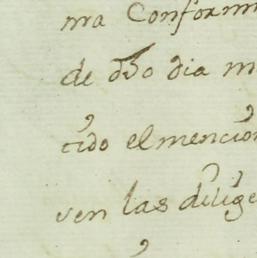 ma Conform
de dho dia m
cido el mencion
ven las dilige